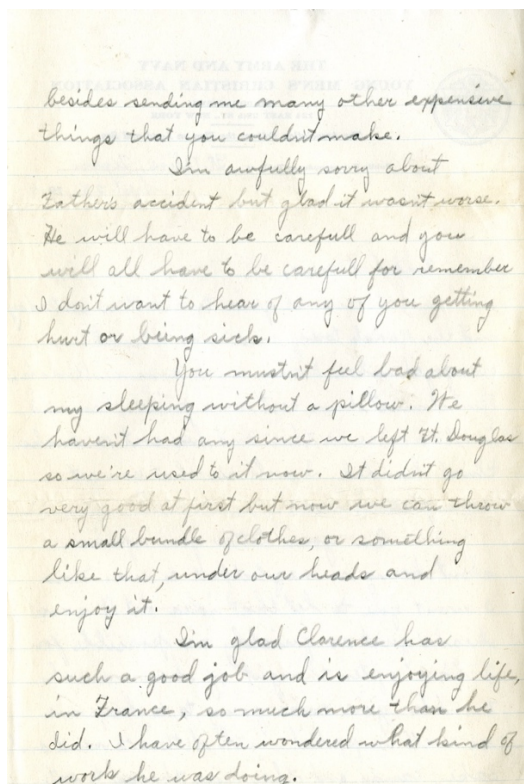 besides sending me many other expensive
things that you couldn't make.
I'm awfully sorry about
Father's accident but glad it wasn't worse.
He will have to be carefull and you
will all have to be carefull for remember
I don't want to hear of any of you getting
hurt or being sick.
You mustn't feel bad about
my sleeping without a pillow. We
haven't had any since we left Ft. Douglas
so we're used to it now. It didn't go
very good at first but now we can throw
a small bundle of clothes, or something
like that, under our heads and
enjoy it.
I'm glad Clarence has
such a good job and is enjoying life,
in France, so much more than he
did. I have often wondered what kind of
work he was doing.